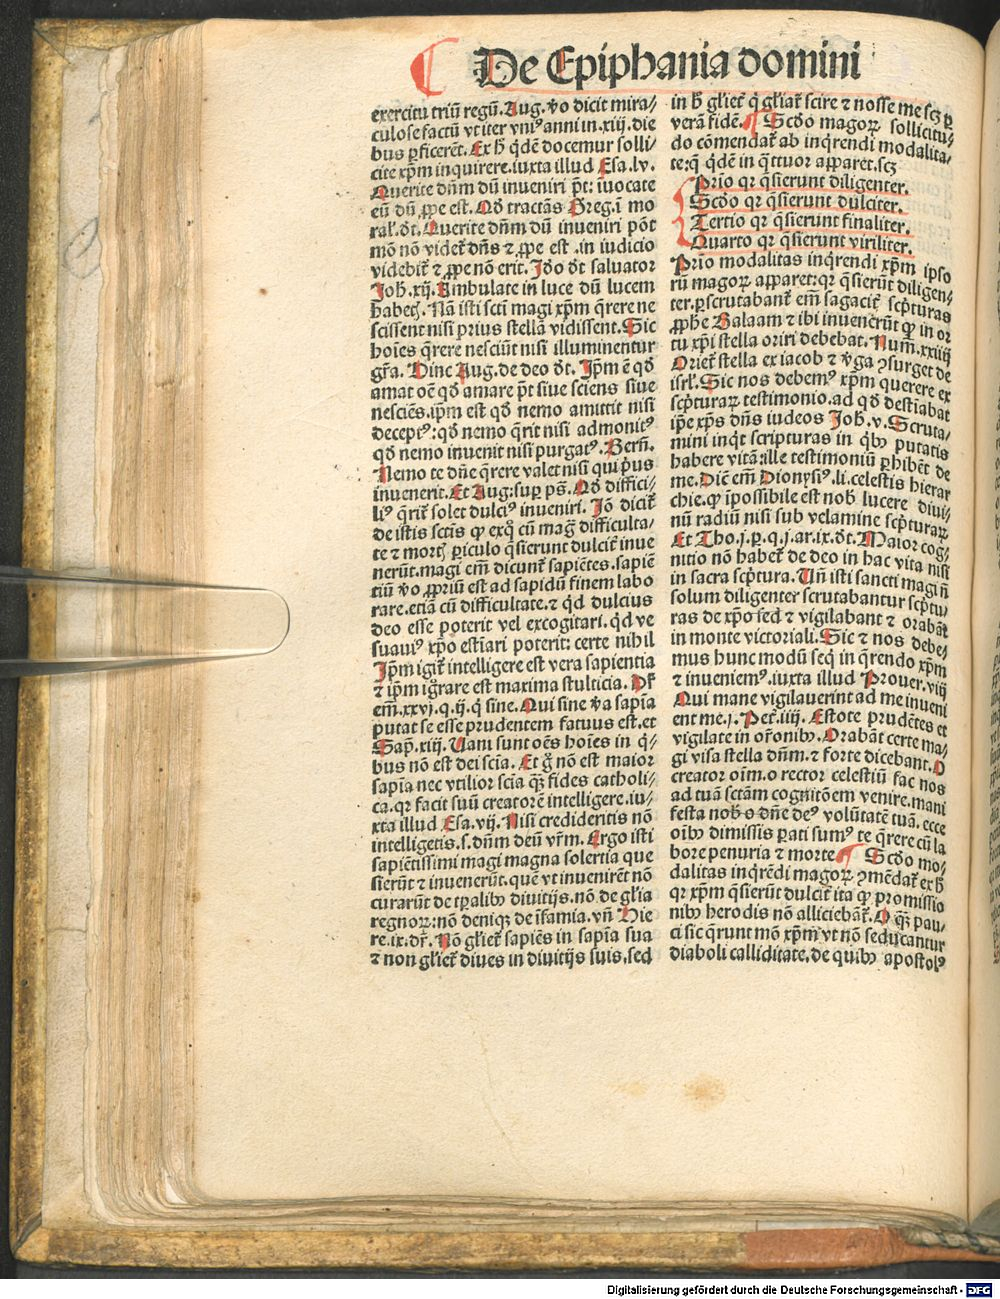 De Epiphania domini
exercitu triū regū. Aug. v̄o dicit mira/
culose factū vt iter vniꝰ anni in .xiij. die
bus ꝑficerēt. Ex h̄ qͥdē docemur solli/
cite xp̄m inquirere .iuxta illud Esa. lv.
Querite dn̄m dū inveniri p̄t: iuocate
eū dū ꝓpe est. Qd̄ tractās Greg. ī mo
ral. d̄t. Querite dn̄m dū inveniri pōt
mō nō videt̄ dn̄s ⁊ ꝓpe est .in iudicio
videbit̄ ⁊ ꝓpe nō erit. Jdo d̄t salvator
Joh. xij. Ambulate in luce dū lucem
habetꝭ. Nā isti scti magi xp̄m q̄rere ne
scissent nisi prius stellā vidissent. Sic
hoīes q̄rere nesciūt nisi illuminentur
gr̄a. Hinc Aug. de deo d̄t. Jp̄m ē qd̄
amat oē qd̄ amare p̄t sive sciens sive
nesciēs. ip̄m est qd̄ nemo amittit nisi
deceptꝰ: qd̄ nemo q̄rit nisi admonitꝰ
qd̄ nemo invenit nisi purgatꝰ. Bern̄.
Nemo te dn̄e q̄rere valet nisi qui pͥus
invenerit. Et Aug: suꝑ ps̄. Qd̄ diffici/
liꝰ q̄rit̄ solet dulciꝰ inveniri. Jō dicit̄
de istis sctis ꝙ exqͦ cū maḡ difficulta/
te ⁊ mortꝭ ꝑiculo q̄sierunt dulcit̄ inve
nerūt. magi em̄ dicunt̄ sapiētes. sapiē
tiū v̄o ꝓpriū est ad sapidū finem labo
rare. etiā cū difficultate. ⁊ qͥd dulcius
deo esse poterit vel excogitari. qͥd ve
suaviꝰ xp̄o estīari poterit: certe nihil
Jp̄m igit̄ intelligere est vera sapientia
⁊ ip̄m igͦrare est maxima stulticia. Pꝫ
em̄ .xxvj. q. ij. q̄ sine. Qui sine v̄a sapīa
putat se esse prudentem fatuus est. et
Sap. xiij. Vani sunt oēs hoīes in qͥ/
bus nō est dei scia. Et g̊ nō est maior
sapīa nec vtilior scīa qꝫ fides catholi/
ca. qr facit suū creatorē intelligere .iu/
xta illud Esa. vij. Nisi credideritis nō
intelligetis .s. dn̄m deū vr̄m. Ergo isti
sapiētissimi magi magna solertia que
sierūt ⁊ invenerūt. quē vt invenirēt nō
curarūt de tp̄alibꝰ divitijs. nō de gl̄ia
regnoꝝ: nō deniqꝫ de īfamia. vn̄ Hie
re. ix. dr̄. Nō gliet̄ sapiēs in sapīa sua
⁊ non gliet̄ dives in divitijs suis. sed
in h̄ gliet̄ qͥ gliat̄ scire ⁊ nosse me scꝫ ꝑ
verā fidē. Scd̄o magoꝝ sollicitu/
do cōmendat̄ ab inqͥrendi modalita/
te: q̄ qͥdē in q̄ttuor apparet. scꝫ
Prīo qr q̄sierunt diligenter.
Scd̄o qr q̄sierunt dulciter.
Tertio qr q̄sierunt finaliter.
Quarto qr q̄sierunt viriliter.
Prīo modalitas inqͥrendi xp̄m ipso
rū magoꝝ apparet: qr q̄sierūt diligen/
ter. ꝑscrutabant̄ em̄ sagacit̄ scp̄turas
ꝓphe Balaam ⁊ ibi invenerūt ꝙ in or
tu xp̄i stella oriri debebat. Num. xxiiij
Oriet̄ stella ex iacob ⁊ v̄ga ꝯsurget de
isrl̄. Sic nos debemꝰ xp̄m querere ex
scp̄turaꝝ testimonio. ad qd̄ destīabat
ip̄e xp̄s dn̄s iudeos Joh. v. Scruta/
mini inqͥt scripturas in qͥbꝰ putatis
habere vitā: ille testimoniū ꝑhibēt de
me. Dic̄ em̄ Dionysiꝰ. li. celestis hierar
chie. ꝙ īpossibile est nob̄ lucere divi/
nū radiū nisi sub velamine scp̄turaꝝ
Et Tho. j. p. q. j. ar. ix. d̄t. Maior cog/
nitio nō habet̄ de deo in hac vita nisi
in sacra scp̄tura. Vn̄ isti sancti magi n̄
solum diligenter scrutabantur scp̄tu/
ras de xp̄o sed ⁊ vigilabant ⁊ orabāt
in monte victoriali. Sic ⁊ nos debe/
mus hunc modū seqͥ in q̄rendo xp̄m
⁊ inveniemꝰ .iuxta illud Prover. viij
Qui mane vigilaverint ad me inveni
ent me. j. Pet̄. iiij. Estote prudētes et
vigilate in or̄onibꝰ. Orabāt certe ma/
gi visa stella dn̄m. ⁊ forte dicebant. O
creator oīm. o rector celestiū fac nos
ad tuā sctam cognitōem venire. mani
festa nob̄ o dn̄e deꝰ volūtatē tuā. ecce
oībꝰ dimissis ꝑati sumꝰ te q̄rere cū la
bore penuria ⁊ morte Scd̄o mo/
dalitas inqͥrēdi magoꝝ ꝯmēdat̄ ex h̄
qr xp̄m q̄sierūt dulcit̄ ita ꝙ promissio
nibꝰ herodis nō alliciebāt̄. O qꝫ pau/
ci sic q̄runt mō xp̄m vt nō seducantur
diaboli calliditate. de quibꝰ apostolꝰ
Digitalisierung gefördert durch die Deutsche Forschungsgemeinschaft - DFG